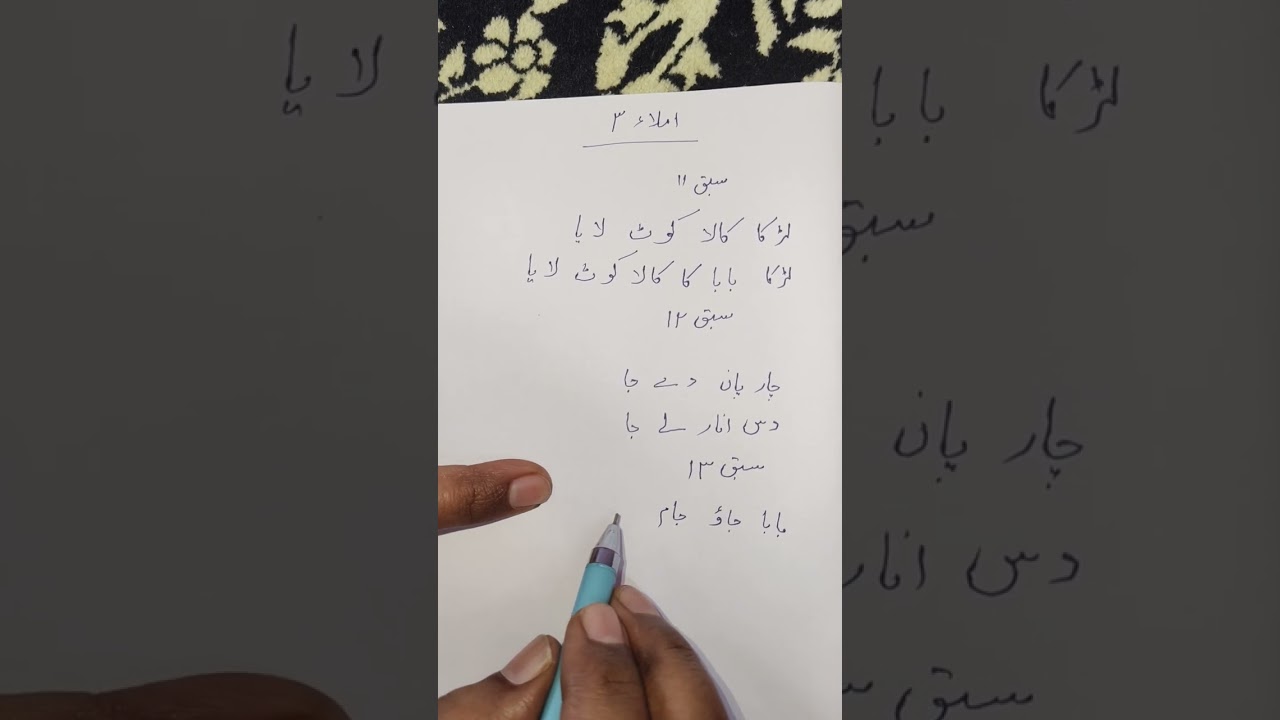 املاء ۳
سبق ۱۱
لڑکا کالا کوٹ لایا
لڑکا بابا کا کالا کوٹ لایا
سبق ۱۲
چار پان دے جا
دس انار لے جا
سبق ۱۳
بابا جاؤ جام